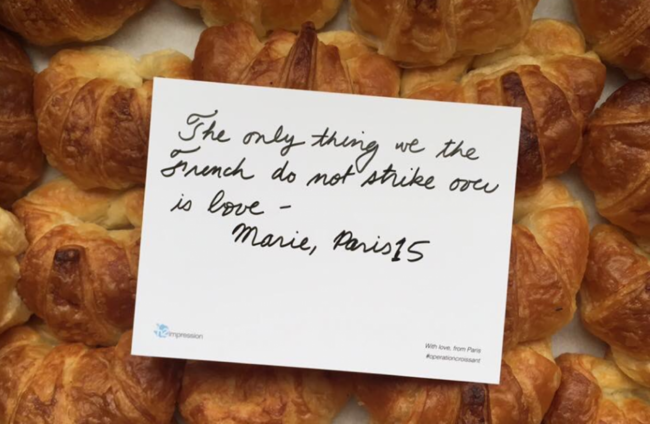 The only thing we the
French do not strike over
is love -
Marie, Paris 15
impression
With love, from Paris
#operationcroissant